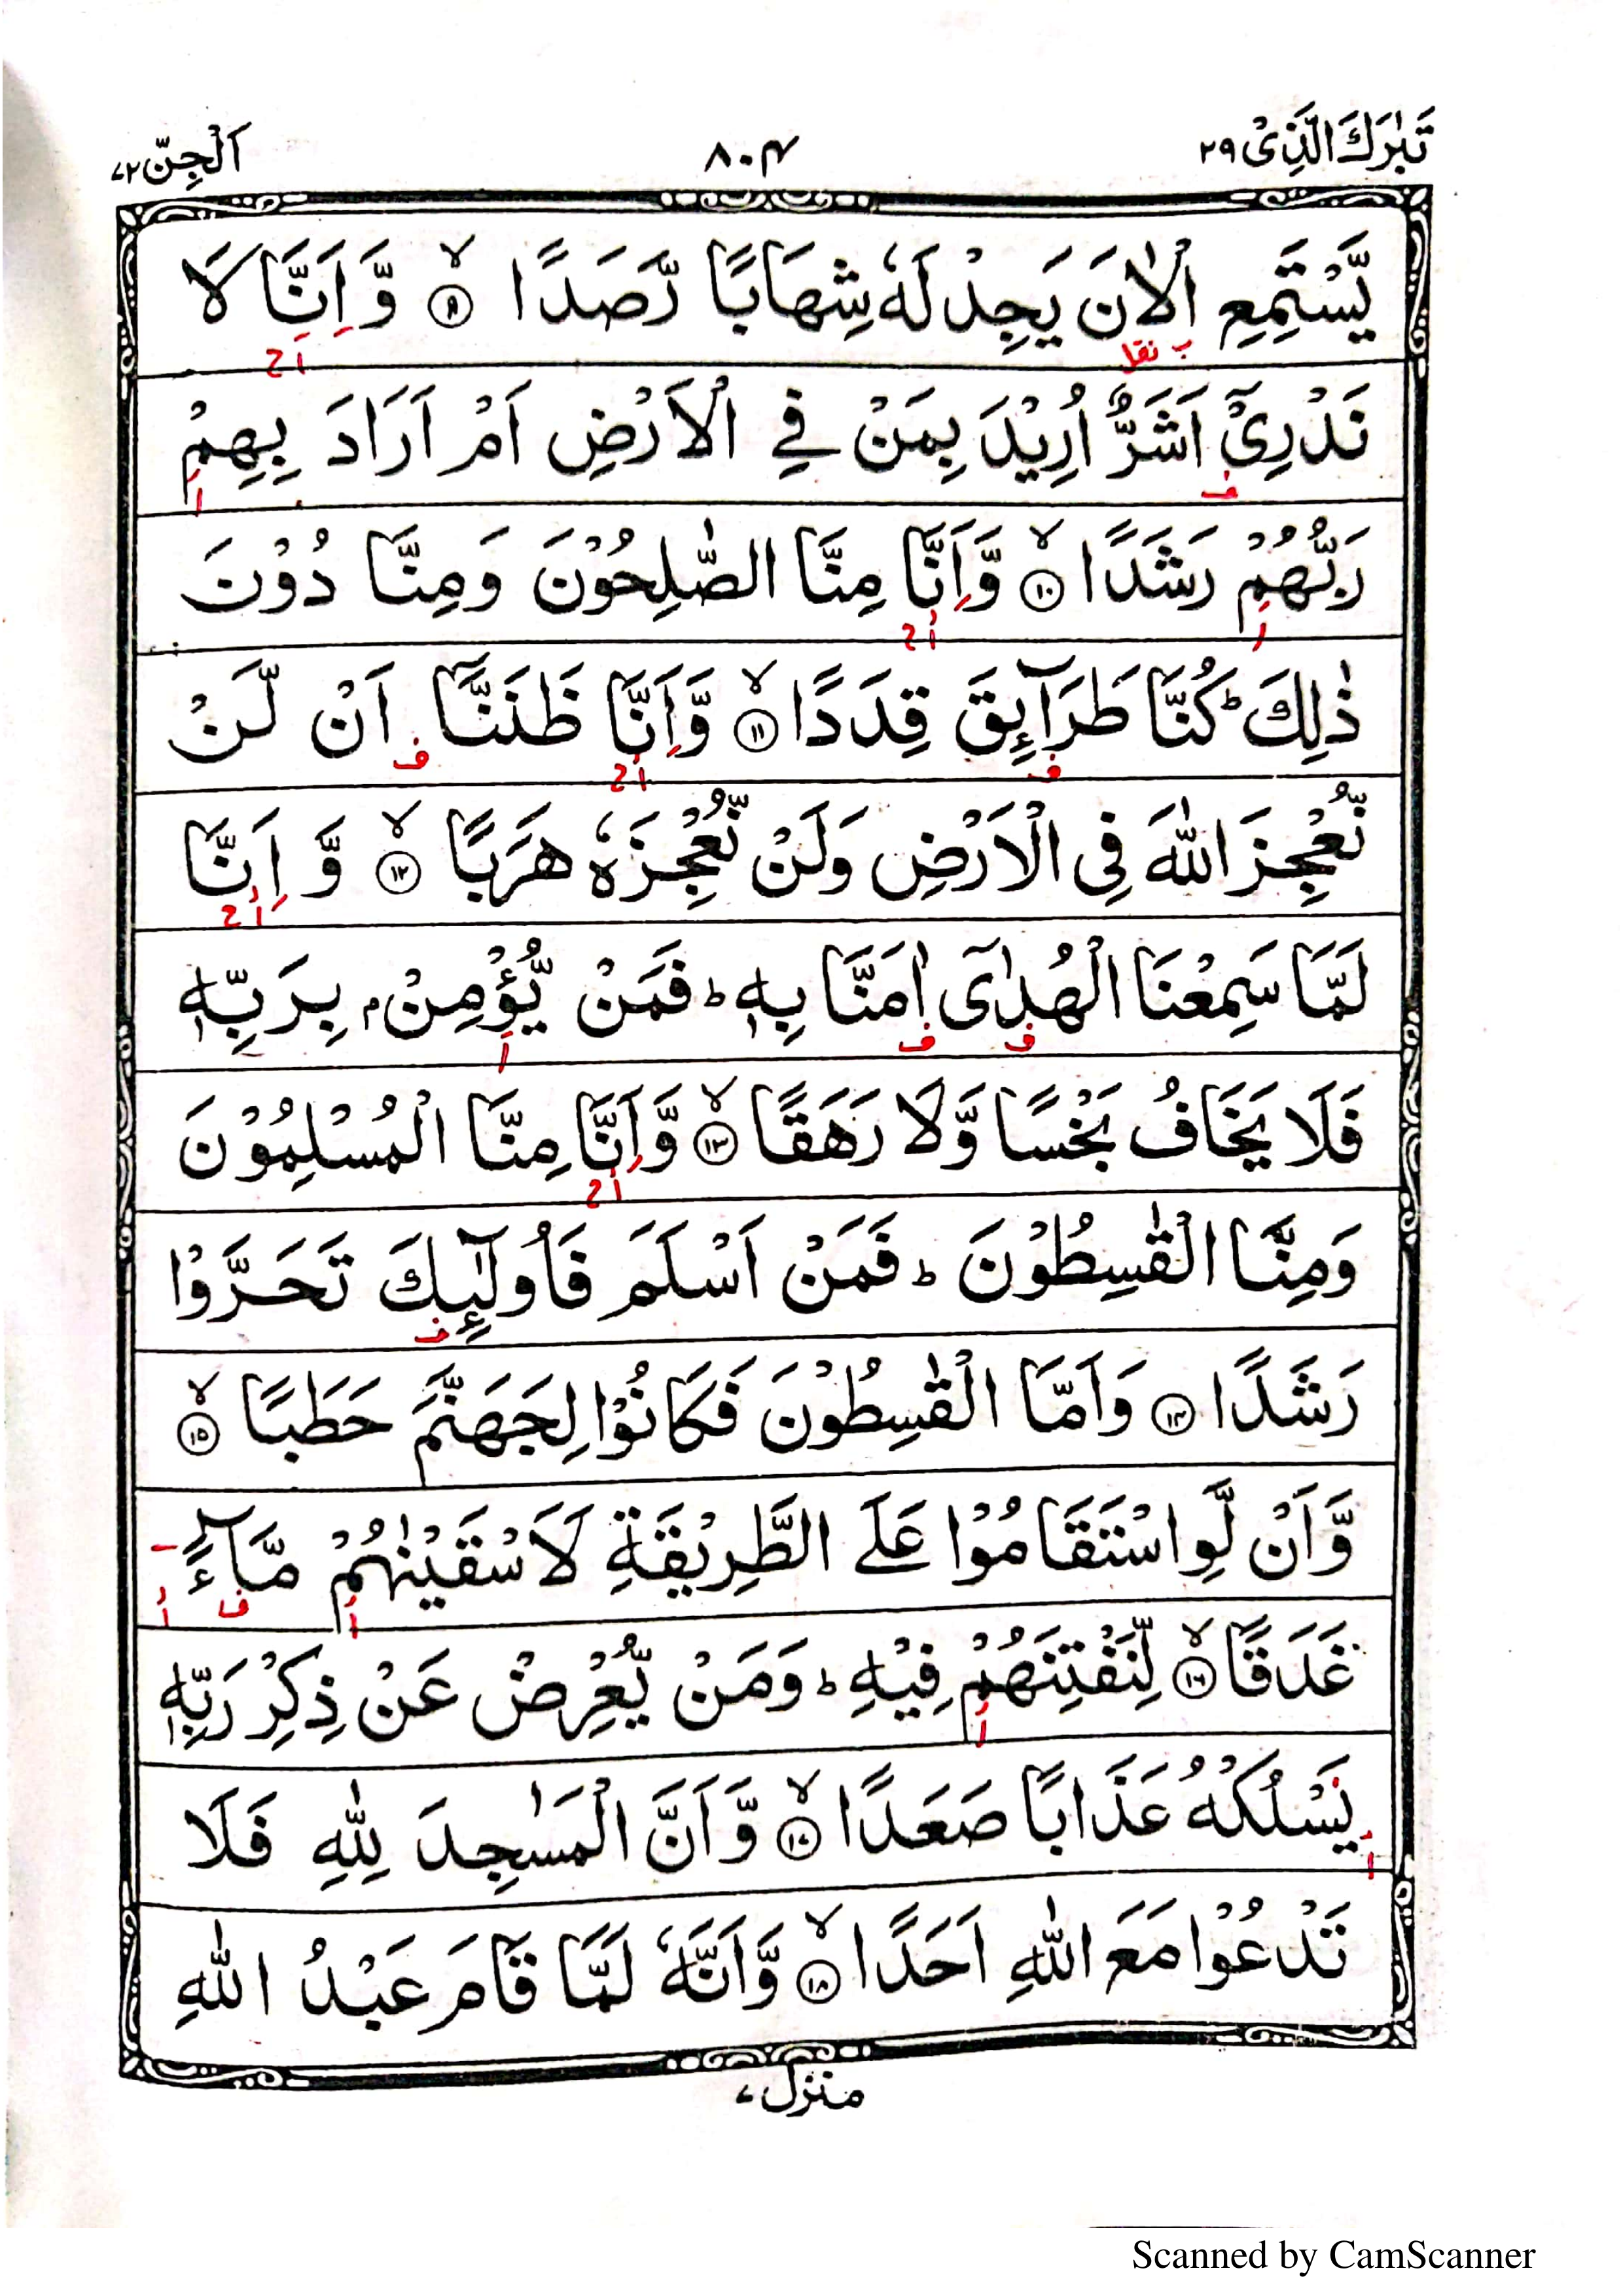 تَبٰرَكَ الَّذِىْ ٢٩
٨٠٤
اَلْجِنّ ٧٢
يَّسْتَمِعِ الْاٰنَ يَجِدْ لَهٗ شِهَابًا رَّصَدًا ۙ ٩ وَّ اَنَّا لَا
نَدْرِىْۤ اَشَرٌّ اُرِيْدَ بِمَنْ فِي الْاَرْضِ اَمْ اَرَادَ بِهِمْ
رَبُّهُمْ رَشَدًا ۙ ١٠ وَّ اَنَّا مِنَّا الصّٰلِحُوْنَ وَمِنَّا دُوْنَ
ذٰلِكَ ؕ كُنَّا طَرَآئِقَ قِدَدًا ۙ ١١ وَّ اَنَّا ظَنَنَّاۤ اَنْ لَّنْ
نُّعْجِزَ اللّٰهَ فِى الْاَرْضِ وَلَنْ نُّعْجِزَهٗ هَرَبًا ۙ ١٢ وَّ اَنَّا
لَمَّا سَمِعْنَا الْهُدٰىۤ اٰمَنَّا بِهٖ ؕ فَمَنْ يُّؤْمِنْۢ بِرَبِّهٖ
فَلَا يَخَافُ بَخْسًا وَّلَا رَهَقًا ۙ ١٣ وَّ اَنَّا مِنَّا الْمُسْلِمُوْنَ
وَمِنَّا الْقٰسِطُوْنَ ؕ فَمَنْ اَسْلَمَ فَاُولٰٓئِكَ تَحَرَّوْا
رَشَدًا ١٤ وَاَمَّا الْقٰسِطُوْنَ فَكَانُوْا لِجَهَنَّمَ حَطَبًا ۙ ١٥
وَّاَنْ لَّوِ اسْتَقَامُوْا عَلَى الطَّرِيْقَةِ لَاَسْقَيْنٰهُمْ مَّآءً
غَدَقًا ۙ ١٦ لِّنَفْتِنَهُمْ فِيْهِ ؕ وَمَنْ يُّعْرِضْ عَنْ ذِكْرِ رَبِّهٖ
يَسْلُكْهُ عَذَابًا صَعَدًا ۙ ١٧ وَّ اَنَّ الْمَسٰجِدَ لِلّٰهِ فَلَا
تَدْعُوْا مَعَ اللّٰهِ اَحَدًا ۙ ١٨ وَّ اَنَّهٗ لَمَّا قَامَ عَبْدُ اللّٰهِ
منزل ٧
Scanned by CamScanner